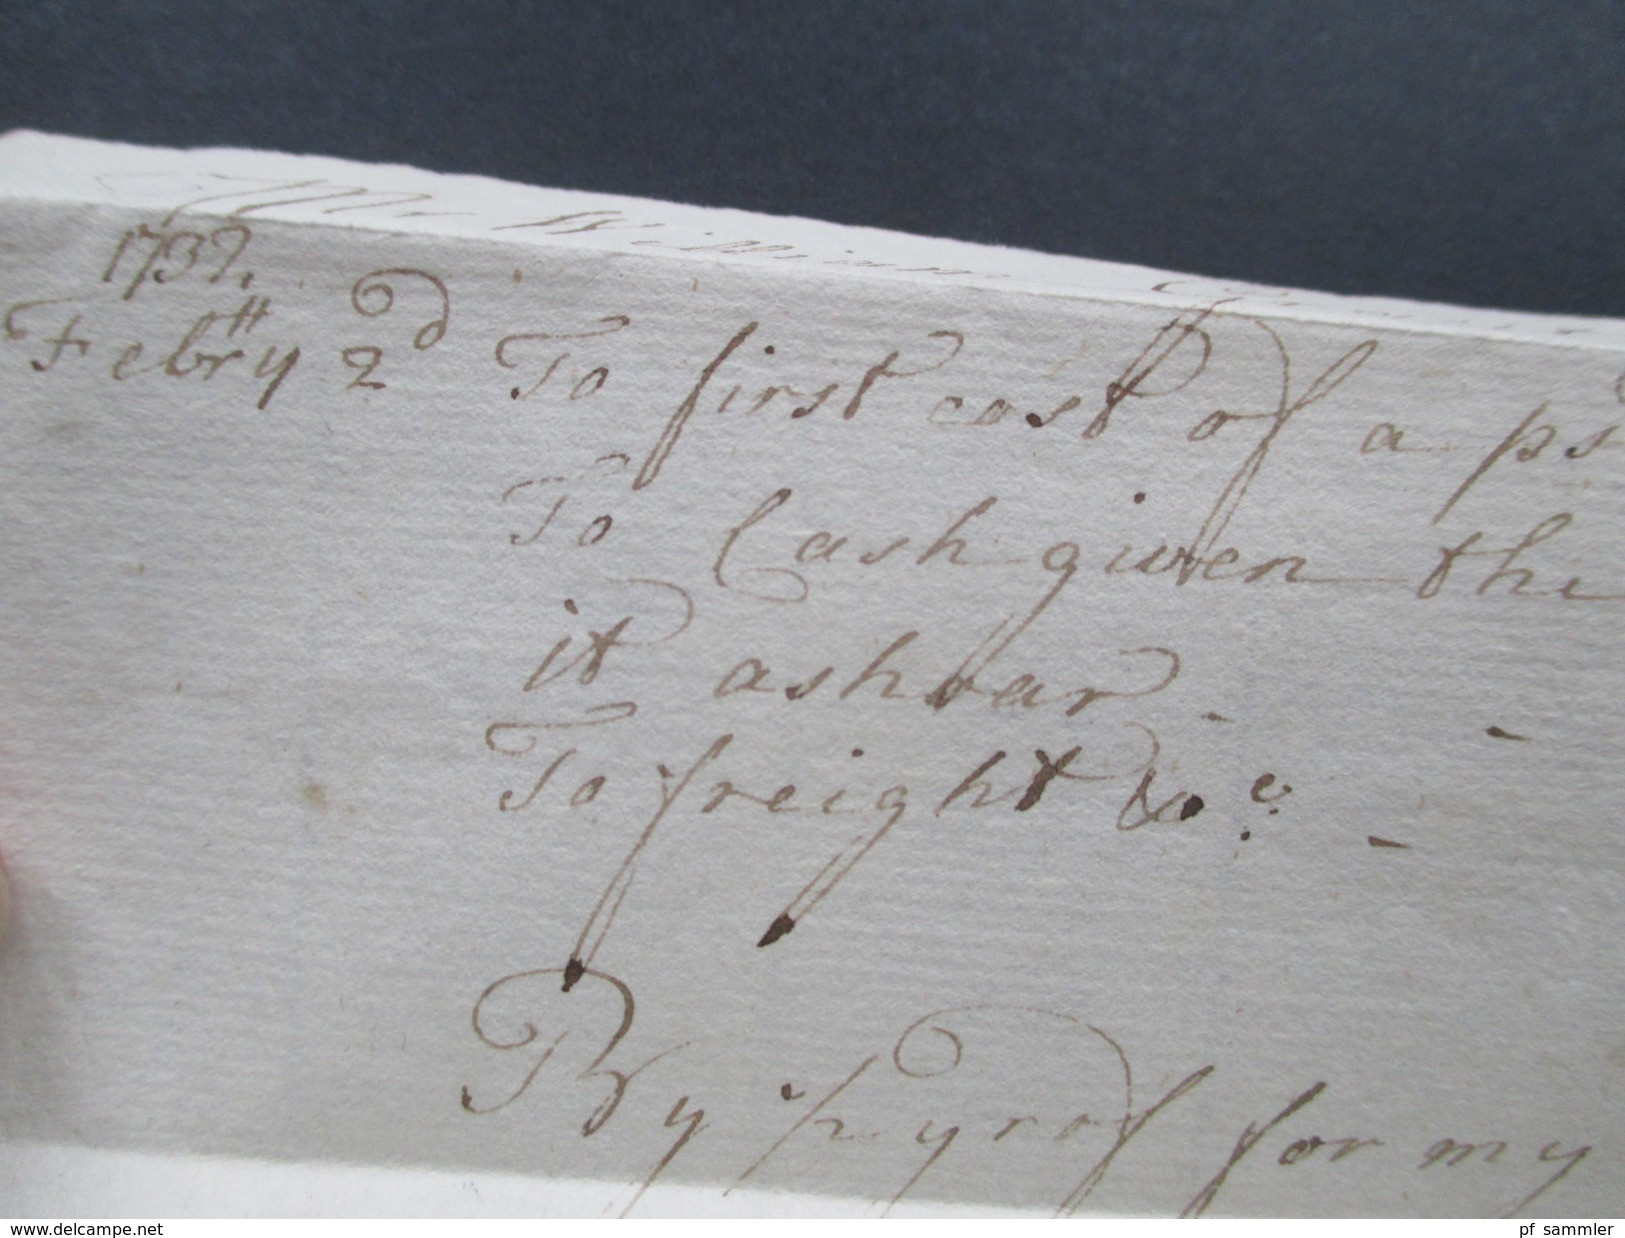 Mr William
1737.
Febry 2d To first cost of a ps
To Cash given the
it ashoar -
To freight &c. -
By ½ yrof for my
www.delcampe.net
pf sammler